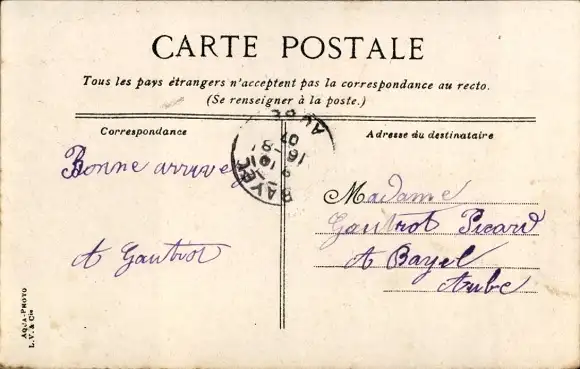 CARTE POSTALE
Tous les pays étrangers n'acceptent pas la correspondance au recto.
(Se renseigner à la poste.)
Correspondance
Adresse du destinataire
BAYEL
AUBE
Bonne arrivée
A Gautrot
Madame
Gautrot Picard
A Bayel
Aube
AQUA-PHOTO
L. V. & Cie